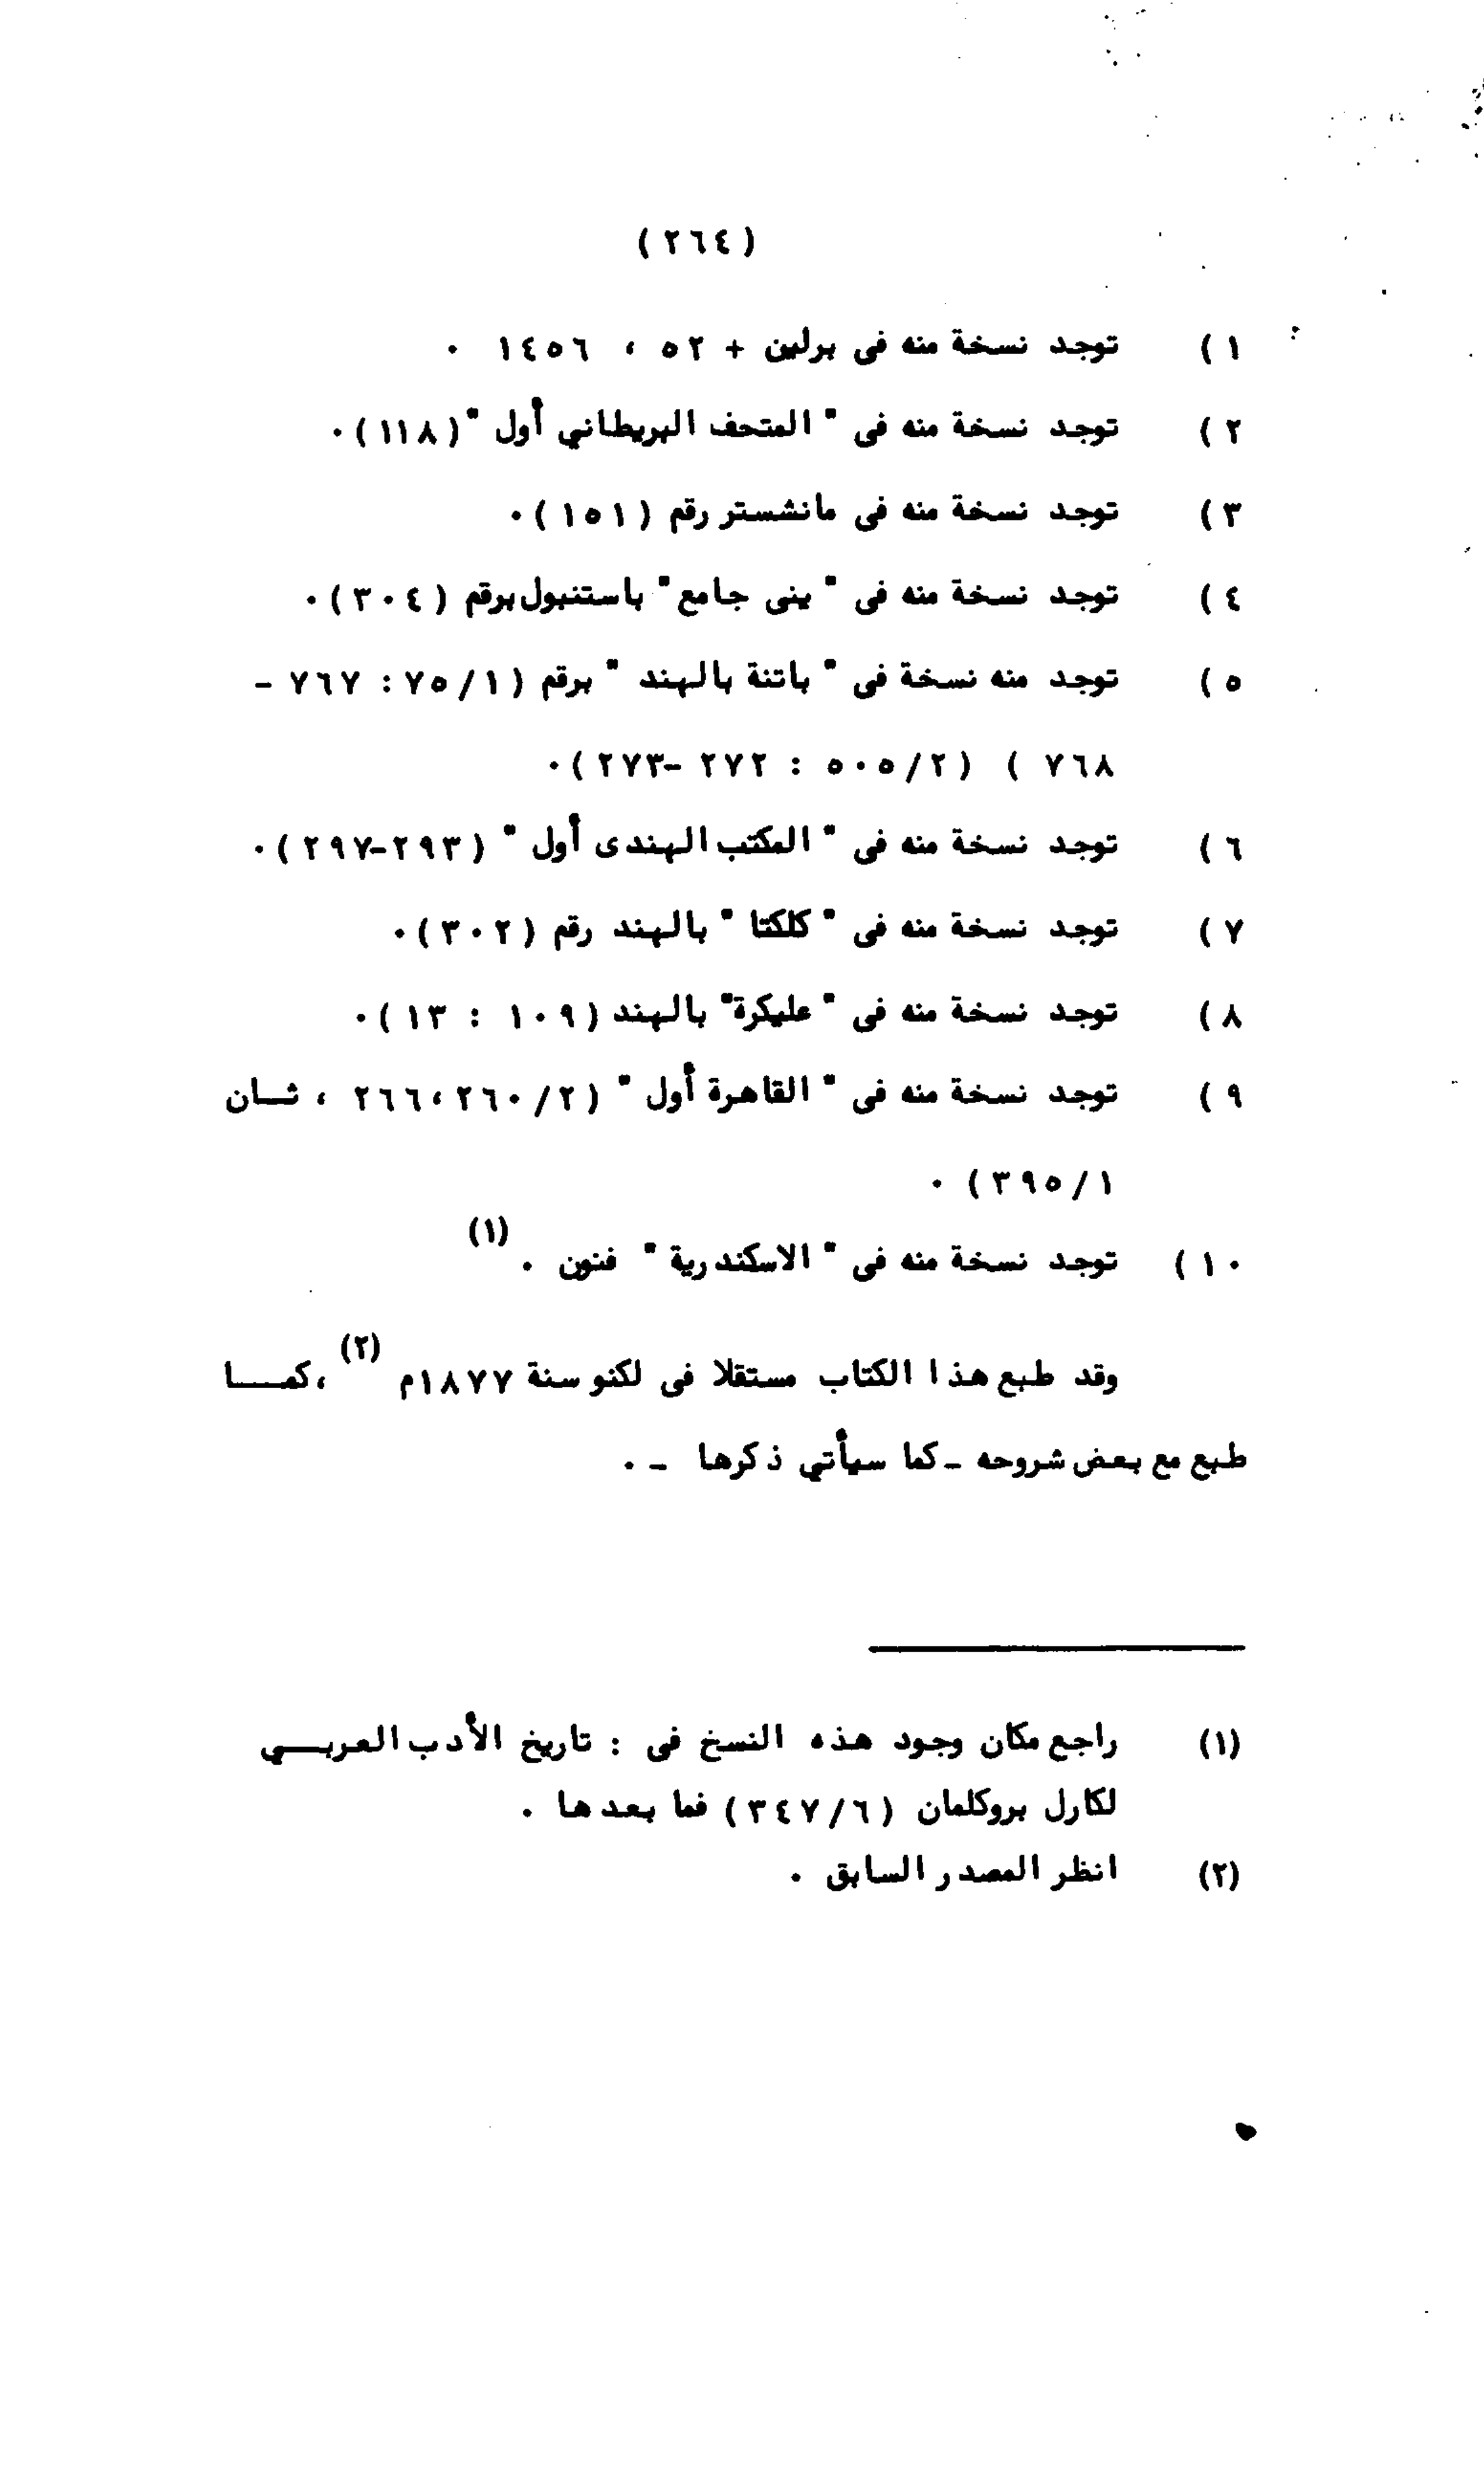 (٢٦٤)
١) توجد نسخة منه فى برلين + ٥٢ ، ١٤٥٦ ٠
٢) توجد نسخة منه فى " المتحف البريطاني أول " (١١٨)٠
٣) توجد نسخة منه فى مانشستر رقم (١٥١)٠
٤) توجد نسخة منه فى " ينى جامع" باستنبول برقم (٣٠٤)٠
٥) توجد منه نسخة فى " باتنة بالهند " برقم (٧٥/١ : ٧٦٧ -
٧٦٨ ) (٥٠٥/٢ : ٢٧٢ -٢٧٣)٠
٦) توجد نسخة منه فى " المكتب الهندى أول " (٢٩٣-٢٩٧)٠
٧) توجد نسخة منه فى " كلكتا " بالهند رقم (٣٠٢)٠
٨) توجد نسخة منه فى " عليكرة" بالهند (١٠٩ : ١٣)٠
٩) توجد نسخة منه فى " القاهرة أول " (٢٦٠/٢،٢٦٦ ، ثـان
٣٩٥/١) ٠
١٠) توجد نسخة منه فى " الاسكندرية " فنون ٠ (١)
وقد طبع هذا الكتاب مستقلا فى لكنو سنة ١٨٧٧م (٢) ،كمـــا
طبع مع بعض شروحه ـ كما سيأتي ذكرها ـ ٠
(١) راجع مكان وجود هذه النسخ فى : تاريخ الأدب العربـــي
لكارل بروكلمان (٣٤٧/٦) فما بعدها ٠
(٢) انظر المصدر السابق ٠